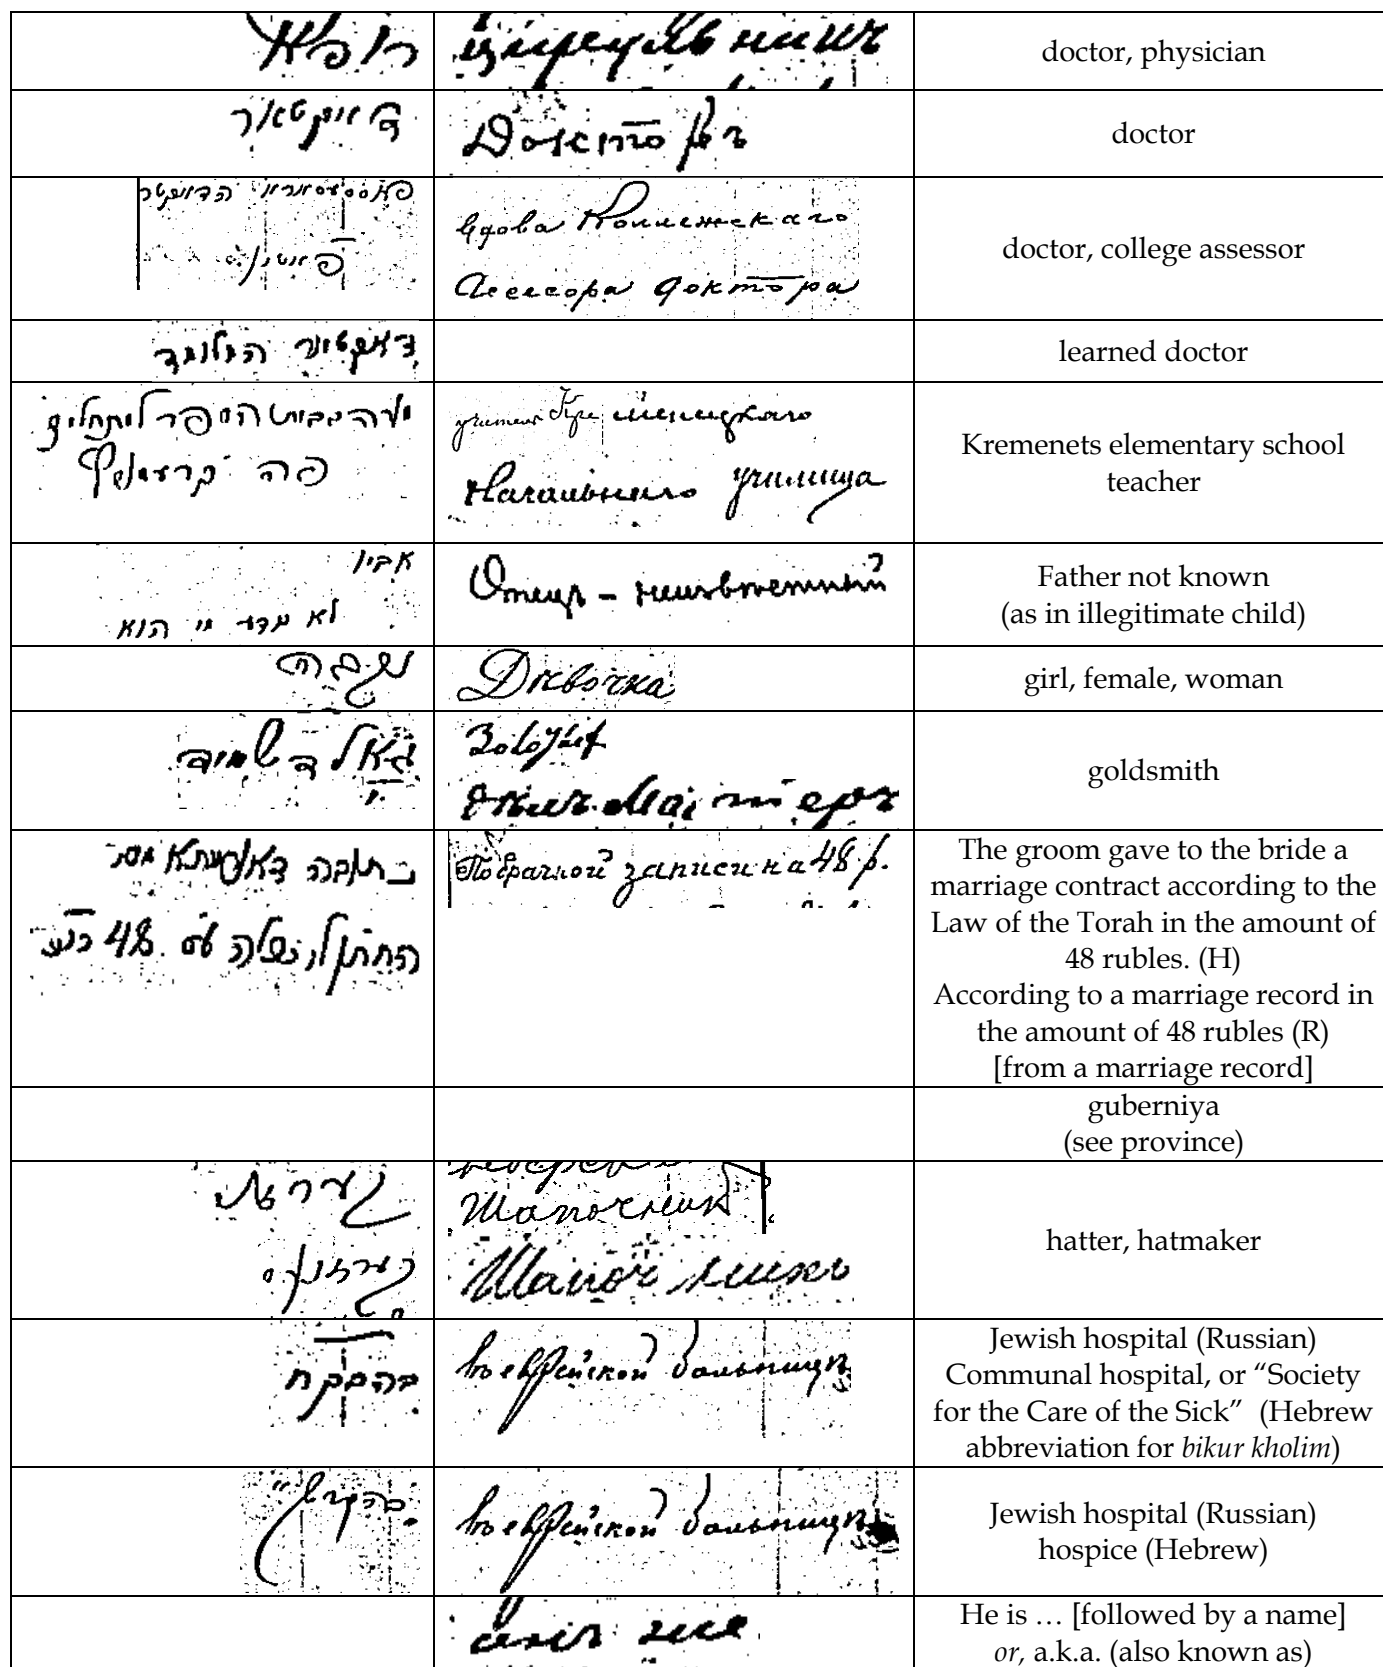 רופא
цирульникъ
doctor, physician
דאקטאר
Докторъ
doctor
הדאקטר
вдова Коллежскаго
Ассесора доктора
doctor, college assessor
דאקטור המלומד
learned doctor
הספר
פה
учителя Кременецкаго
Начальнаго училища
Kremenets elementary school
teacher
אביו
לא נודע מי הוא
Отецъ – неизвѣстный
Father not known
(as in illegitimate child)
נקבה
Дѣвочка
girl, female, woman
גאלדשמיד
goldsmith
כתובה דאורייתא מסר
החתן להכלה 48
По брачной записи на 48 р.
The groom gave to the bride a
marriage contract according to the
Law of the Torah in the amount of
48 rubles. (H)
According to a marriage record in
the amount of 48 rubles (R)
[from a marriage record]
guberniya
(see province)
Шапочник
Шапочникъ
hatter, hatmaker
בהבקח
въ еврейской больницѣ
Jewish hospital (Russian)
Communal hospital, or “Society
for the Care of the Sick” (Hebrew
abbreviation for bikur kholim)
בהקדש
въ еврейской больницѣ
Jewish hospital (Russian)
hospice (Hebrew)
He is … [followed by a name]
or, a.k.a. (also known as)